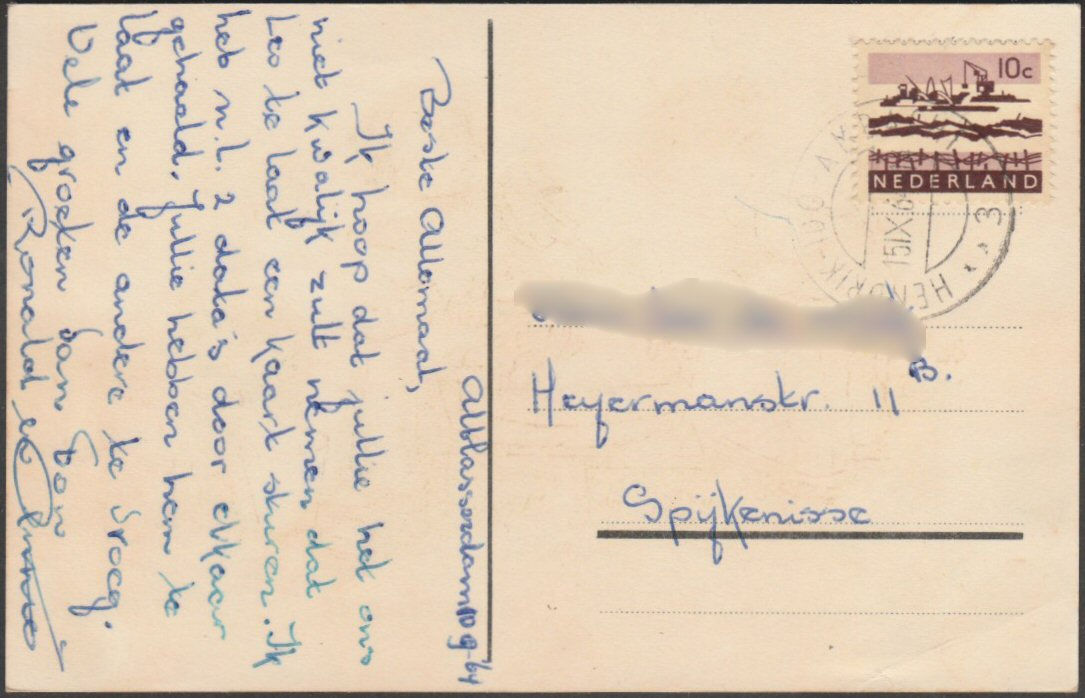 Alblasserdam 10 9-'64
Beste allemaal,
Ik hoop dat jullie het ons
niet kwalijk zult nemen dat
Leo te laat een kaart sturen. Ik
heb n.l. 2 data's door elkaar
gehaald. Jullie hebben hem te
laat en de andere te vroeg.
Vele groeten van Ton
Ronald en
10c
NEDERLAND
HENDRIK-IDO-A
15 IX 64
3
Heyermanstr. 11 B.
Spijkenisse